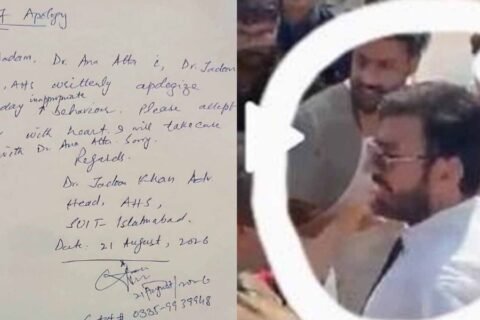 of Apology
Madam. Dr. Ana Atta i, Dr. Jadoon
, AHS writtenly apologize
day inappropriate behaviour. Please accept
with heart. I will take care
with Dr. Ana Atta. Sorry.
Regards.
Dr. Jadoon Khan
Head, AHS,
SUIT- Islamabad.
Date: 21 August, 2026
21 August/2026
0335-9939948